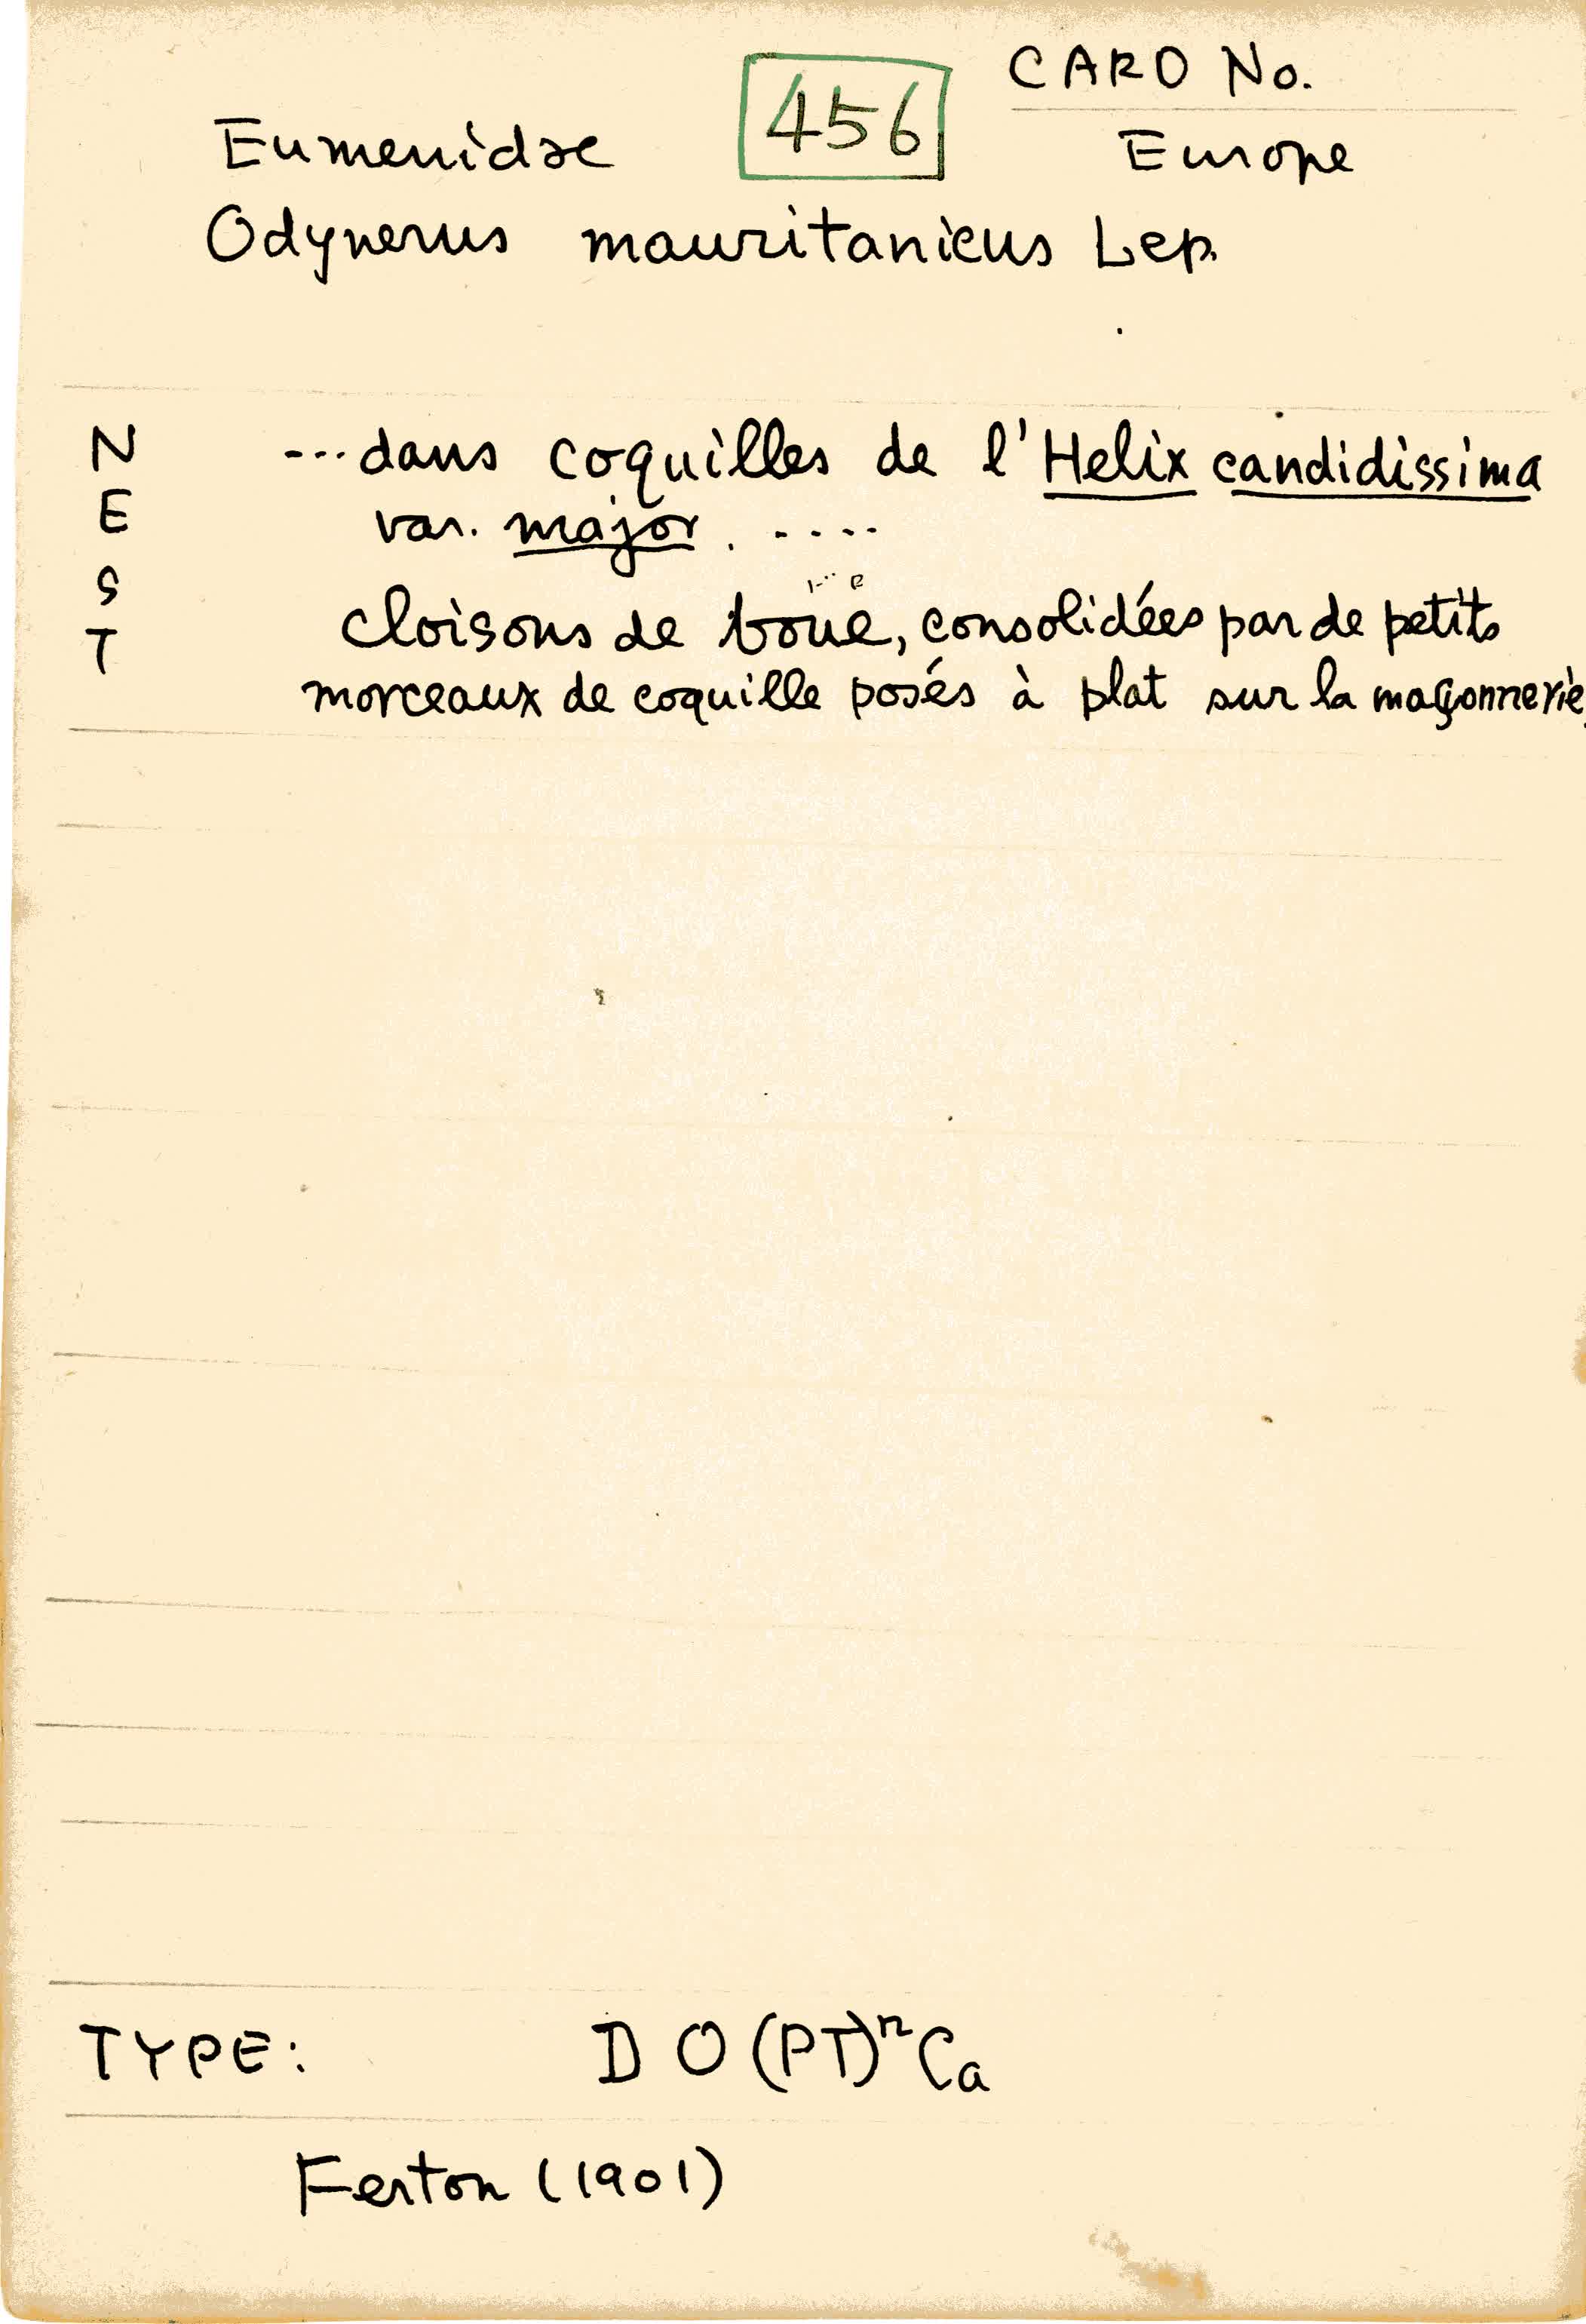 CARD No.
456
Eumenidae
Europe
Odynerus mauritanicus Lep.
NEST
---dans coquilles de l'Helix candidissima
var. major. ----
cloisons de boue, consolidées par de petits
morceaux de coquille posés à plat sur la maçonnerie.
TYPE: D O (PT)ⁿCa
Ferton (1901)